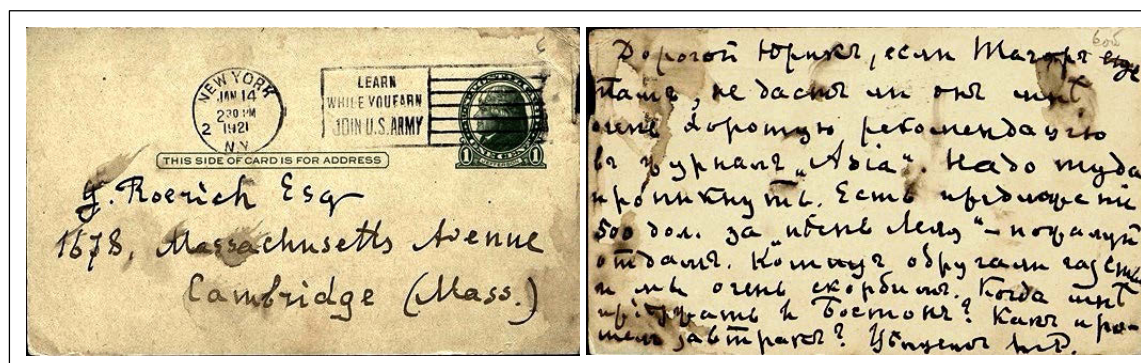 NEW YORK
JAN 14
2 30 PM
1921
2
N.Y.
LEARN
WHILE YOU EARN
JOIN U.S. ARMY
THIS SIDE OF CARD IS FOR ADDRESS
1 JEFFERSON 1
G. Roerich Esq
1678, Massachusetts Avenue
Cambridge (Mass.)
Дорогой Юрикъ, если Тагоръ еще
тамъ, не дастъ ли онъ мнѣ
очень хорошую рекомендацію
въ журналъ „Asia“. Надо туда
проникнуть. Есть предложеніе
500 дол. за „пѣснь Леля“ – пожалуй
отдамъ. обругали газеты
и мы очень скорбимъ. Когда мнѣ
пріѣхать в Бостонъ? Какъ про-
шелъ завтракъ?